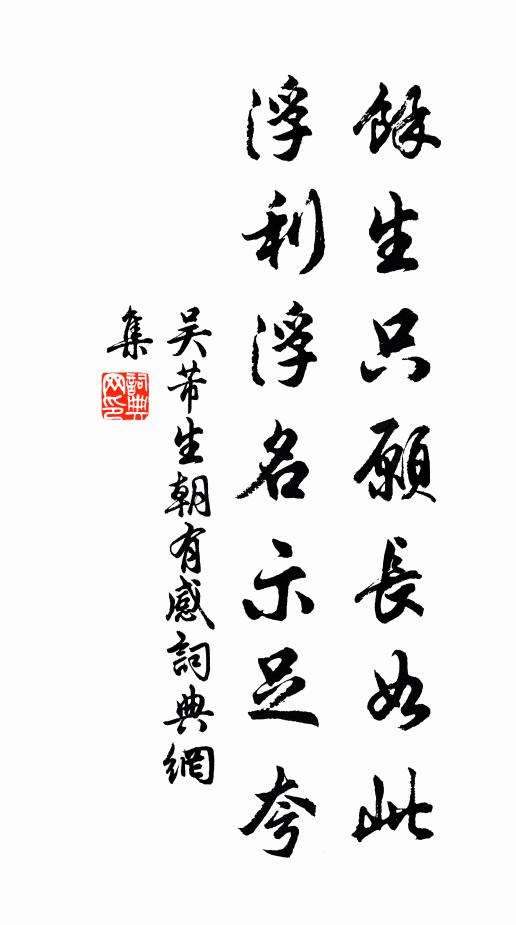 餘生只願長如此
浮利浮名示足夸
吴芾生朝有感詞典網
集
詞典网印